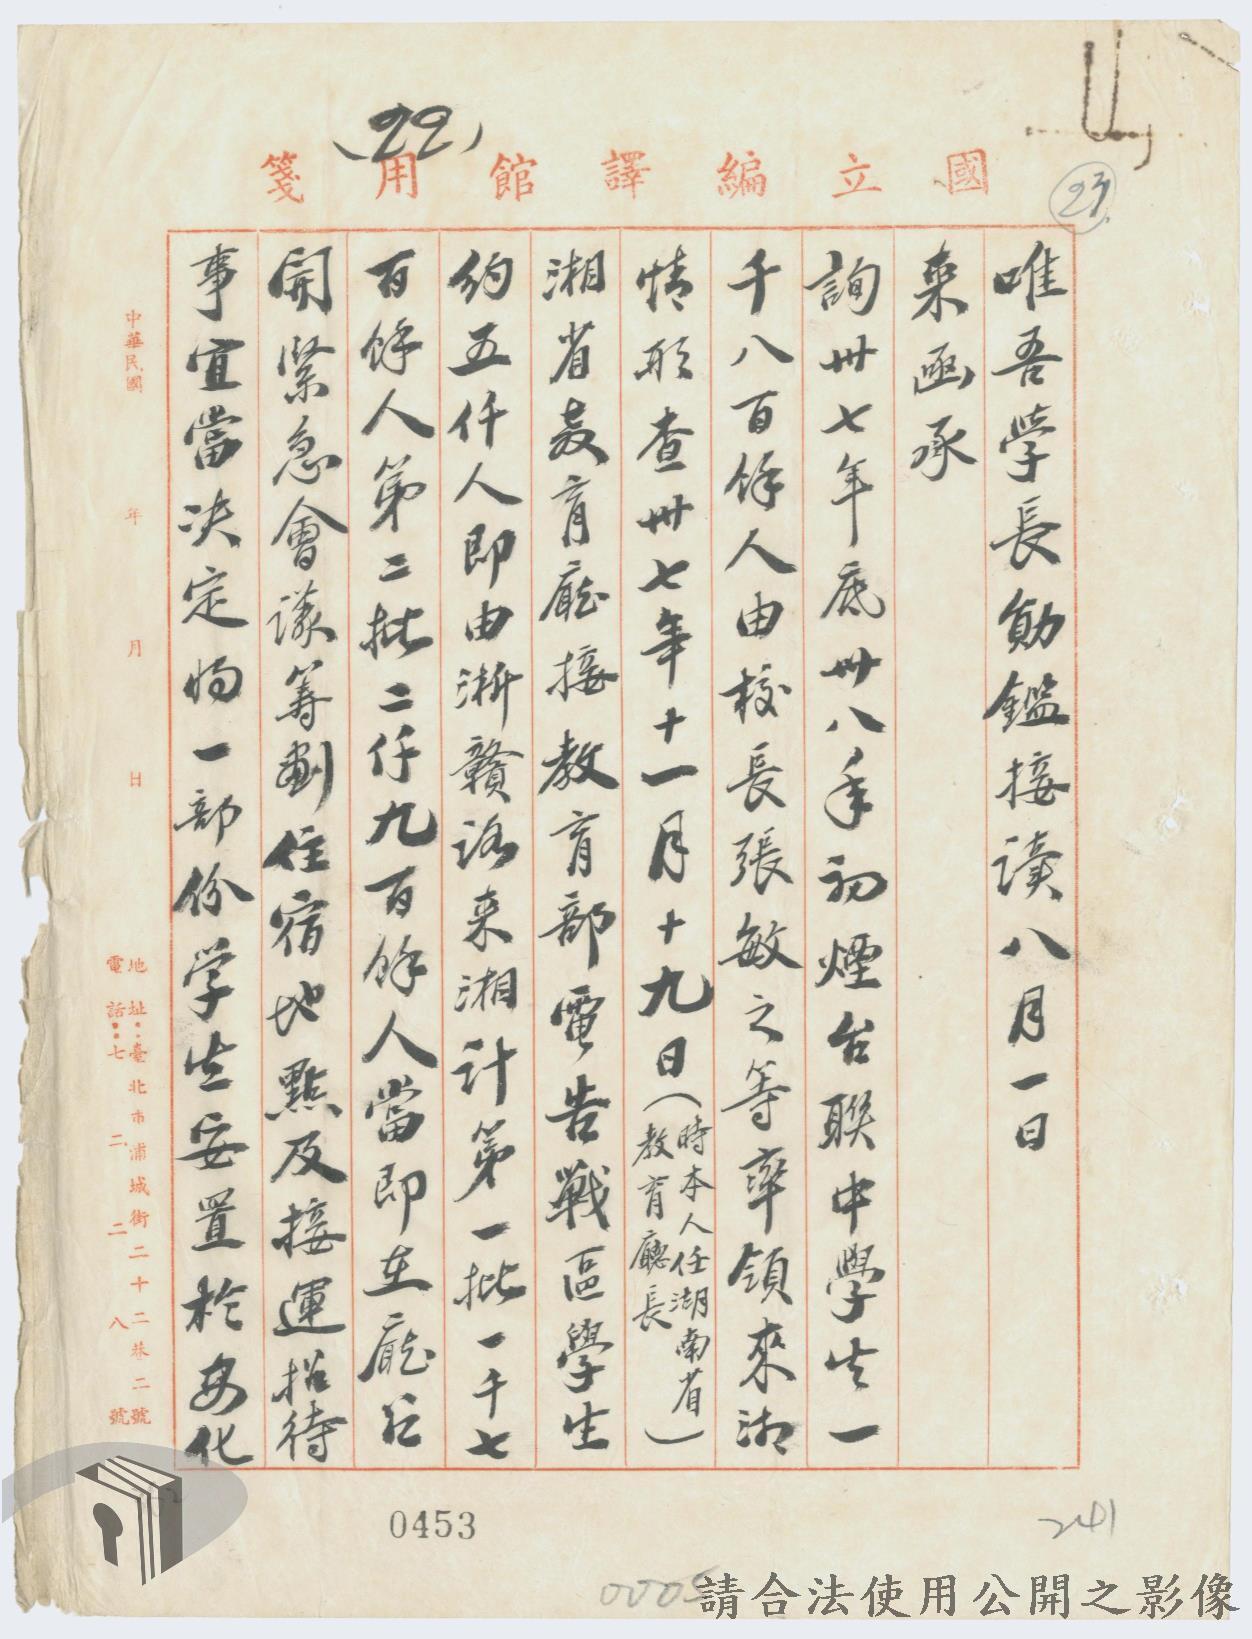 (22)
國立編譯館用箋
23
唯吾學長勛鑑接讀八月一日
來函承
詢卅七年底卅八年初煙台聯中學生一
千八百餘人由校長張敏之等率領來湖
情形查卅七年十一月十九日(時本人任湖南省教育廳長)
湘省教育廳接教育部電告戰區學生
約五仟人即由浙贛路來湘計第一批一千七
百餘人第二批二仟九百餘人當即在廳召
開緊急會議籌劃住宿地點及接運招待
事宜當決定將一部份學生安置於安化
中華民國 年 月 日
地址：臺北市浦城街二十二巷二號
電話：七二二八號
0453
241
0005
請合法使用公開之影像